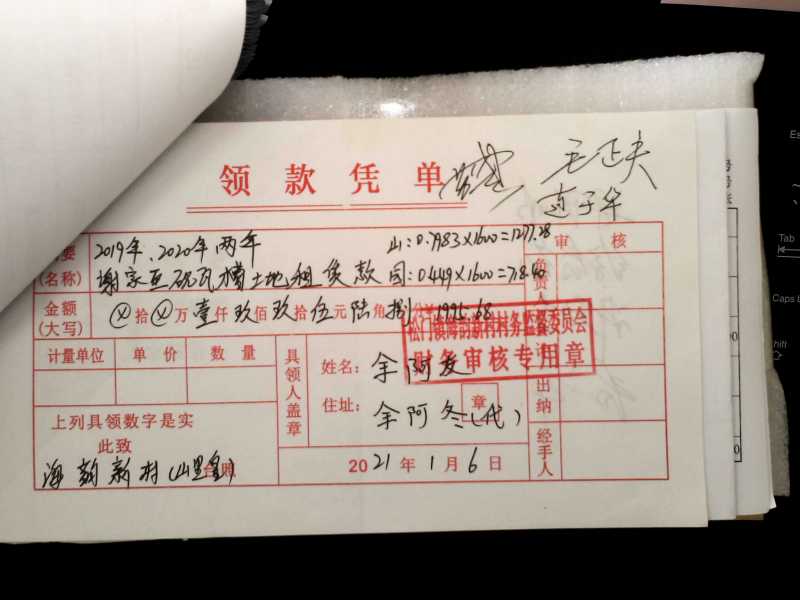 领款凭单
王正夫
2019年、2020年两年
山:0.7983×1600=1277.28
审核
(名称)
谢家亚砚瓦槽土地租赁款
田:0.449×1600=718.40
负责人
金额
(大写)
ⓧ拾ⓧ万壹仟玖佰玖拾伍元陆角捌分
1995.68
松门镇海韵新村村务监督委员会
财务审核专用章
计量单位
单价
数量
具领人盖章
姓名:
余阿友
住址:
余阿冬(代)
章
出纳
上列具领数字是实
此致
海韵新村(山里皇)
2021年1月6日
经手人
Tab